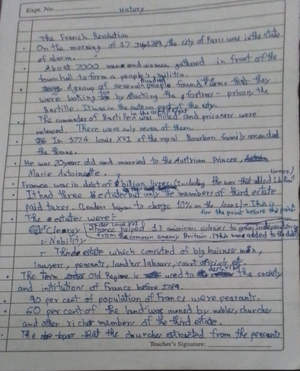 Expt. No.
History
The French Revolution
On the morning of 17 July 1789, the city of Paris was in the state
of alarm.
About 7000 men and women gathered in front of the
townhall to form a people's militia.
A group of several people found arms that they
were looking by the fortress - prison, the
Bastille. It was in the eastern part of the city.
The commander of Bastille was killed and prisoners were
released. There were only seven of them.
In 1774 Louis XVI of the royal Bourbon family ascended
the throne.
He was 20 years old and married to the Austrian Princess
Marie Antoinette.
France was in debt of billion livres, including the war that
It had three estates but only the members of third estate
paid taxes. Lenders began to charge 10% on the loans. This is
for the point before this point
The estates were:
Clergy
France helped 13 american colonies to gain independence
from the common enemy Britain. (This was added to the debt)
Nobility
Third estate which consisted of big business men,
lawyers, peasants, landless labour, court officials etc.
The term Old Regime is used to the society
and institutions of France before 1789.
90 per cent of population of France were peasants.
60 per cent of the land was owned by nobles, churches
and other richer members of the third estate.
The that the churches extracted from the peasants
Teacher's Signature: